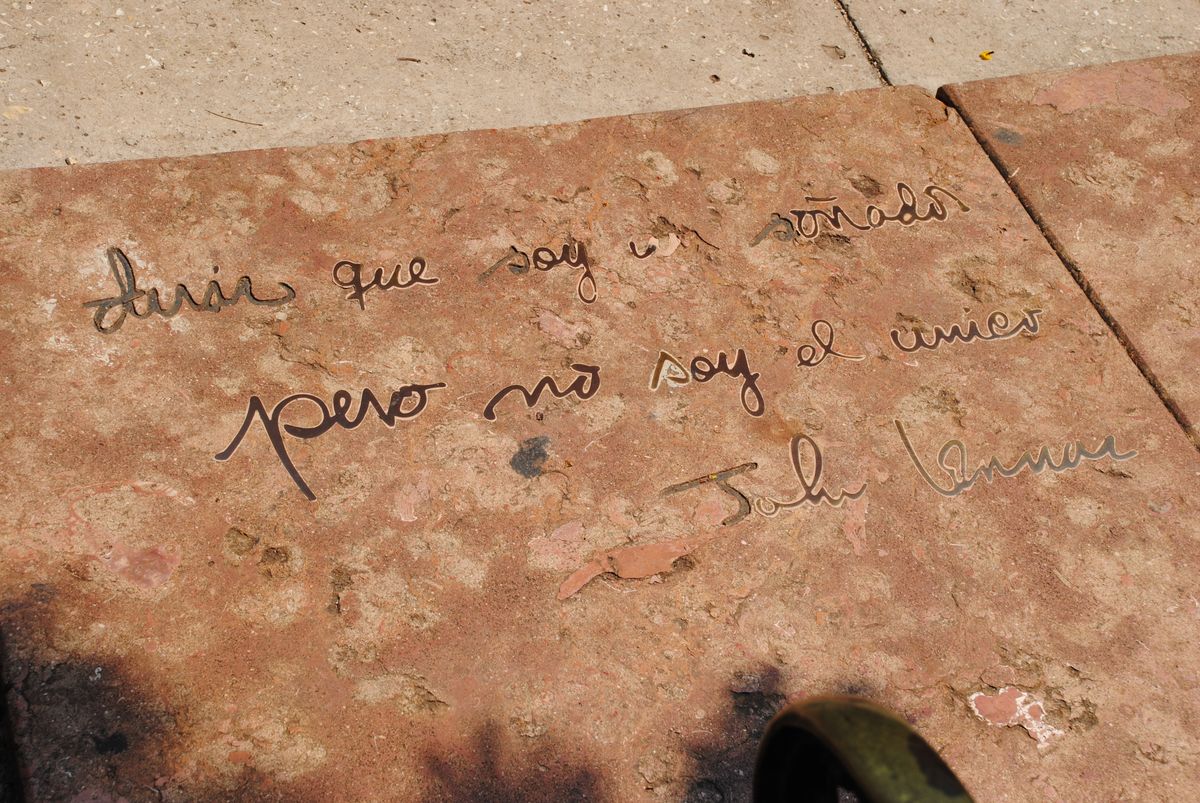 dirás que soy un soñador
pero no soy el unico
John Lennon